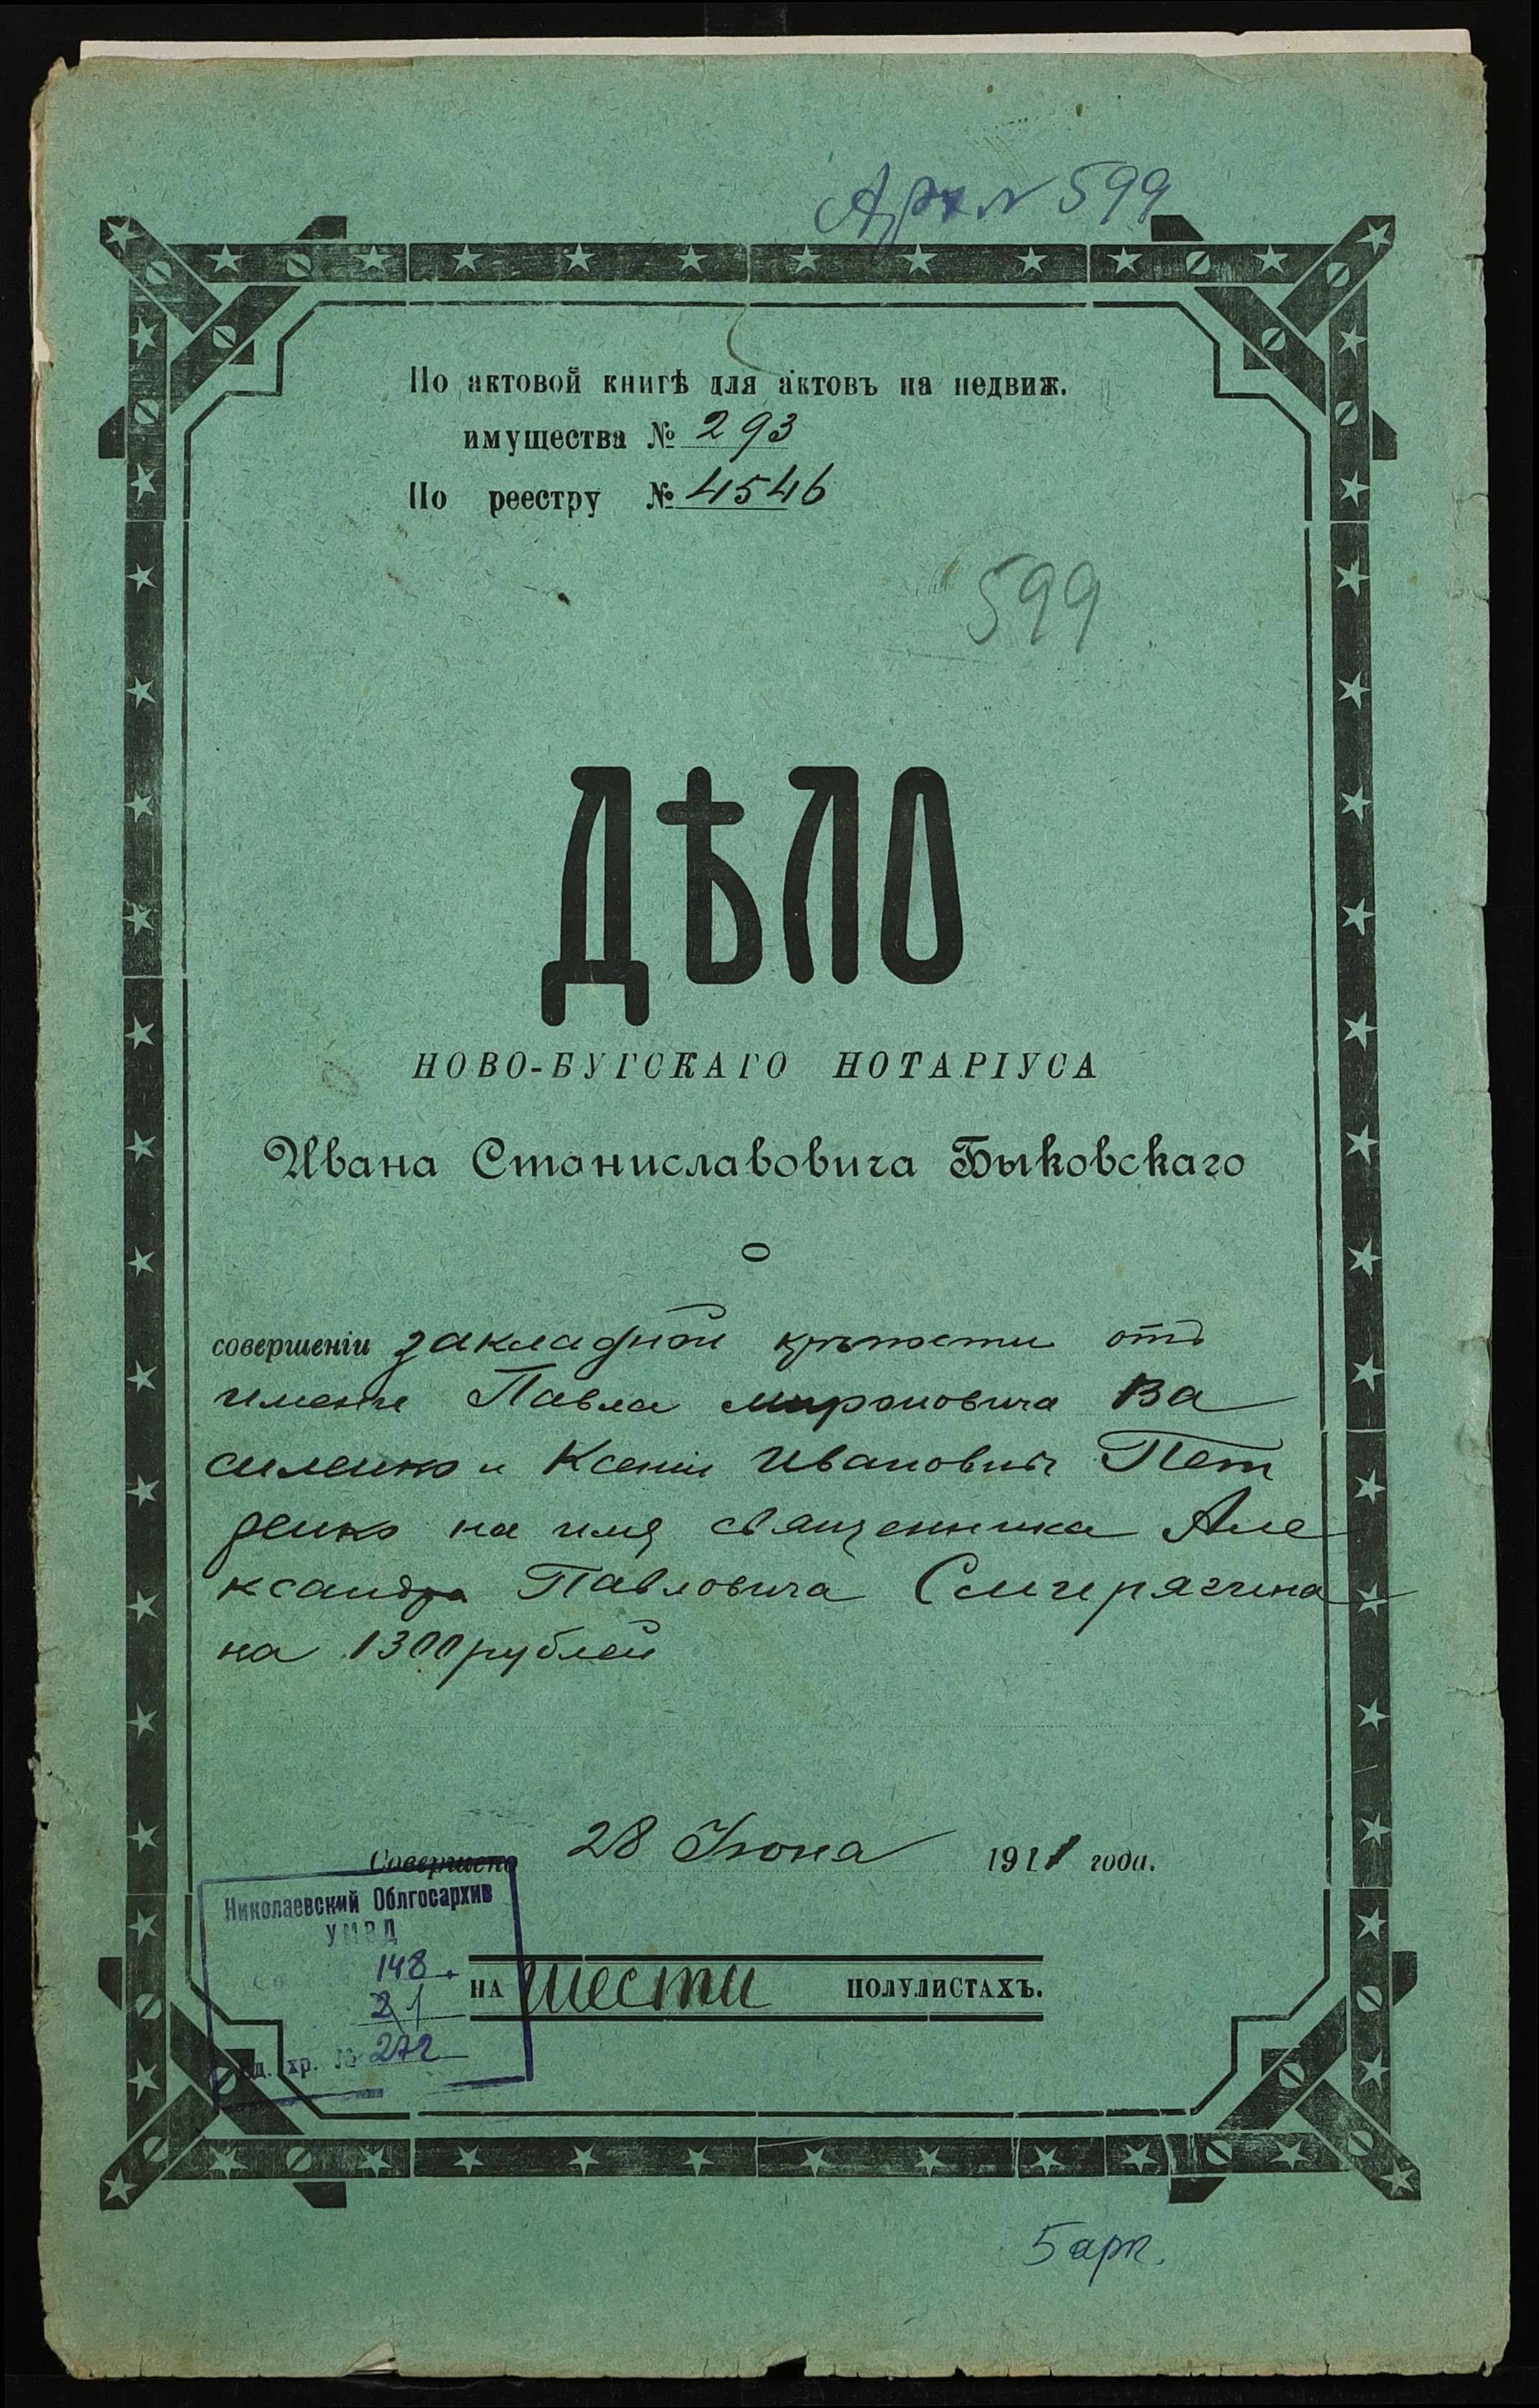 Арх № 599
По актовой книгѣ для актовъ на недвиж.
имущества № 293
По реестру № 4546
599
ДѢЛО
НОВО-БУГСКАГО НОТАРІУСА
Ивана Станиславовича Быковскаго
о
совершеніи закладной крѣпости отъ
имени Павла Мироновича Ва
силенко и Ксеніи Ивановны
на имя священника Але
ксандра Павловича Смирягина
на 1300 рублей
Совершено 28 Іюня 1911 года.
Николаевский Облгосархив
УМВД
148
21
ед. хр. № 272
НА шести ПОЛУЛИСТАХЪ.
5 арк.